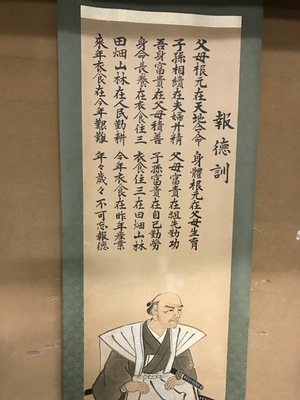 報德訓
父母根元在天地令命 身體根元在父母生育
子孫相續在夫婦丹精 父母富貴在祖先勤功
吾身富貴在父母積善 子孫富貴在自己勤勞
身命長養在衣食住三 衣食住三在田畑山林
田畑山林在人民勤耕 今年衣食在昨年産業
來年衣食在今年艱難 年々歳々不可忘報德